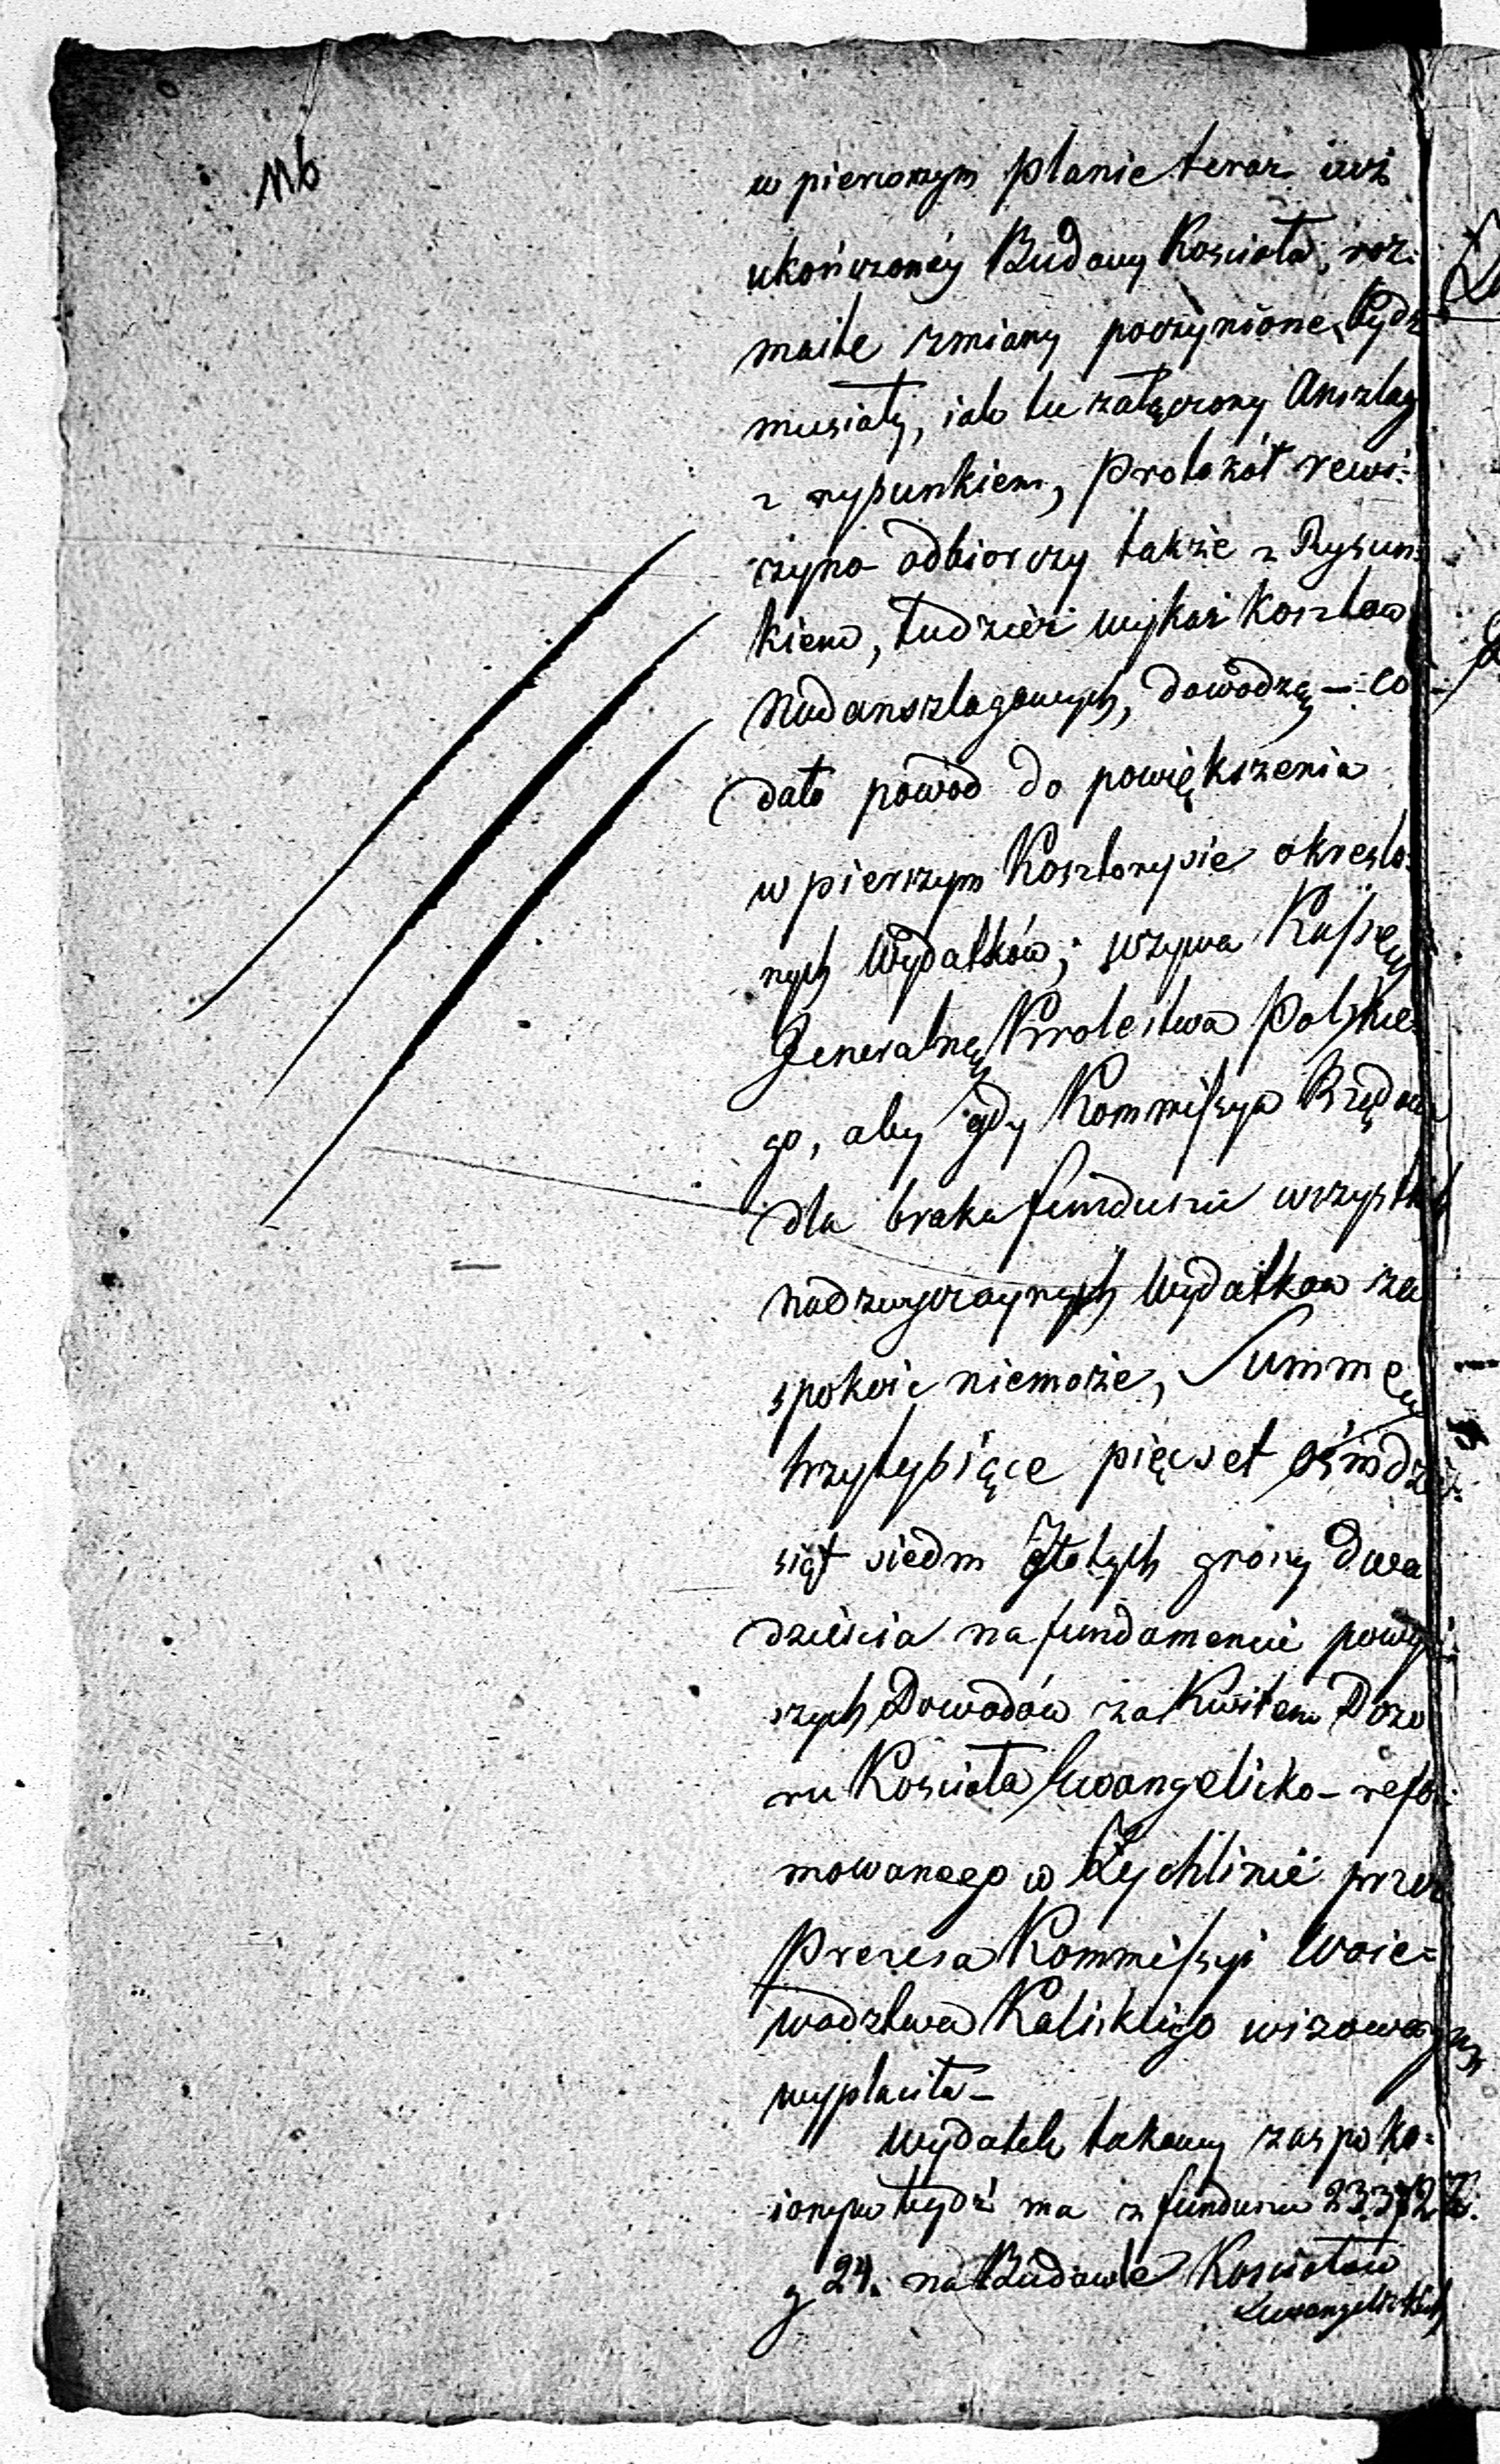 Nb
w pierwszym planie teraz iuż
ukończonéy Budowy Koscioła, roz:
maite zmiany poczynione bydź
musiały, iak tu załączony Anszlag
z rysunkiem, Protokół rewi:
zyino odbiorczy także z Rysun:
kiem, tudzież wykaz kosztów
Nadanszlagowych, dowodzą – co
dało powód do powiększenia
w pierszym Kosztorysie okreslo:
nych Wydatków; wzywa Kassę
Generalną Krolestwa Polskie:
go, aby gdy Kommissya Rządowa
dla braku funduszu wszystkich
nadzwyczaynych Wydatkow za
spokoić niemoże, Summę
trzytysiące pięcset ośmdzie:
siąt siedm złotych groszy dwa
dzieścia na fundamencie powyż:
szych Dowodów za Kwitem Dozo
ru Koscioła Ewangelicko-refor:
mowanego w Żychlinie przez
Prezesa Kommissyi Woie=
wodztwa Kaliskiego wizowanym
wypłaciła –
Wydatek takowy zaspoko:
ionym bydź ma z funduszu 23,372 Zł.
g 24. na Budowle Kosciołow
Ewangelickich